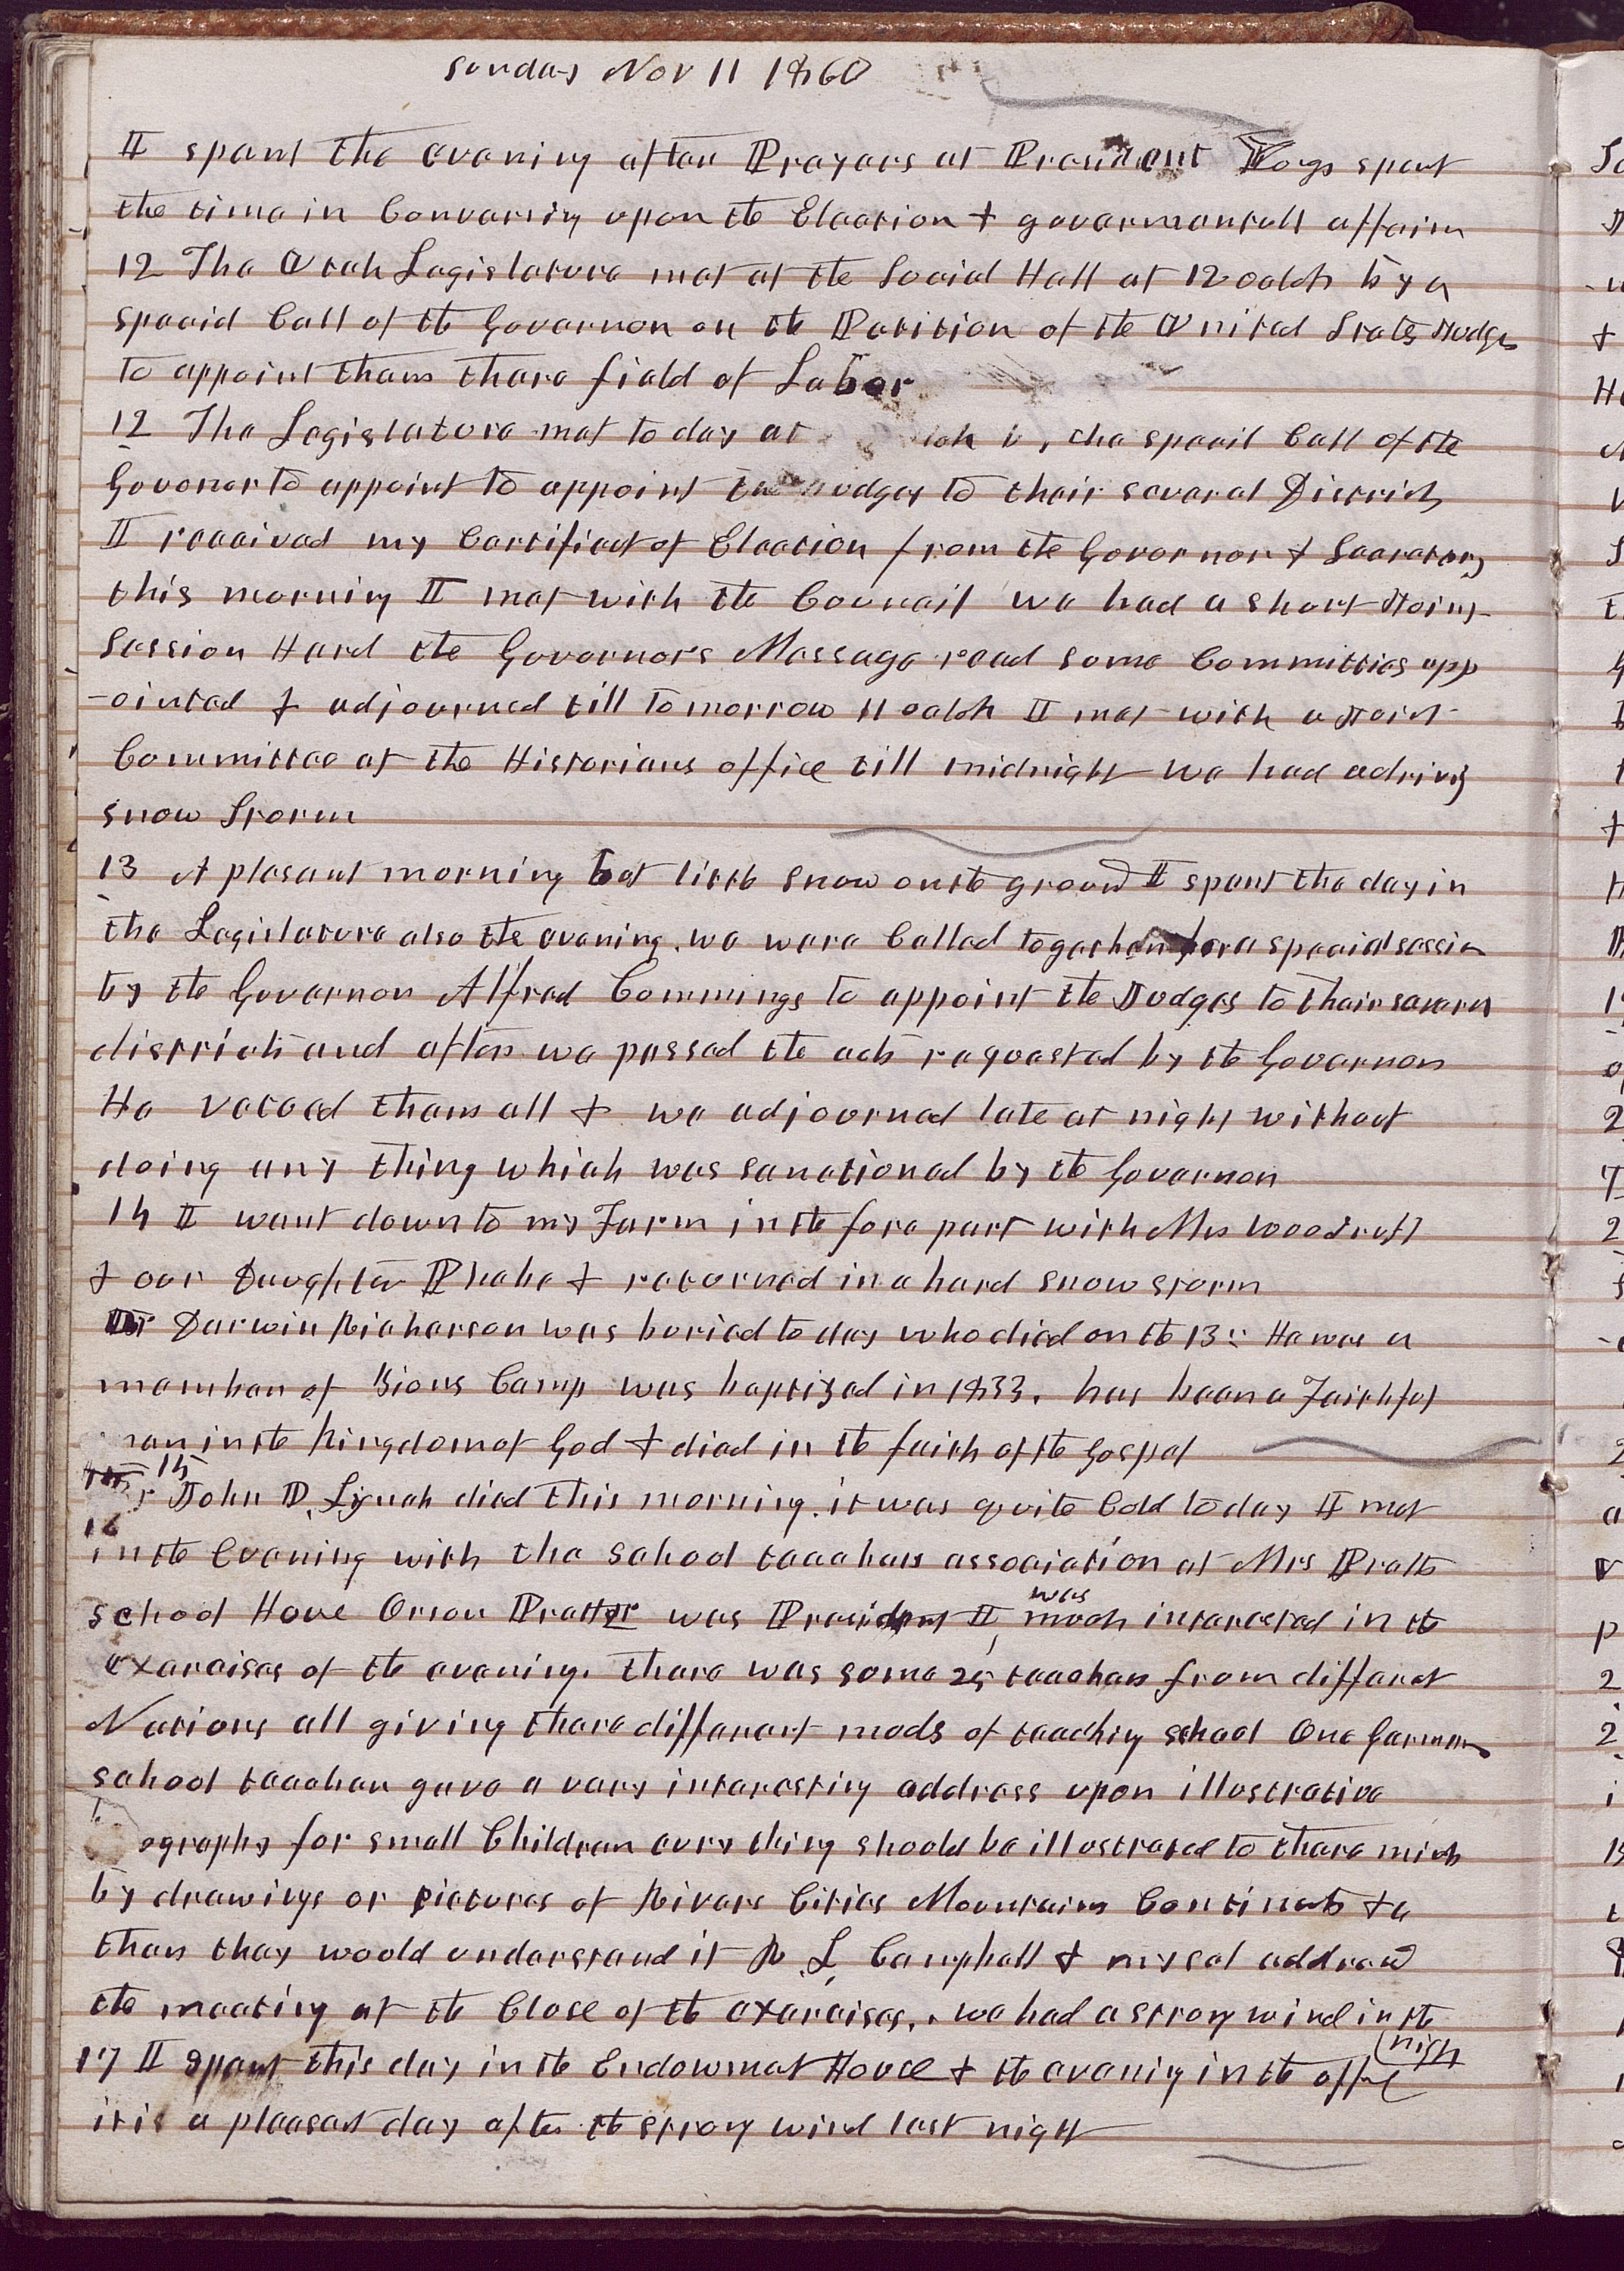 Sunday Nov 11 1860
I spent the evening after Prayers at President Youngs spent
the time in Conversing upon the Election & govermentall affairs
12 The Utah Legislature met at the Social Hall at 12 oclok by a
special Call of the Governor on the Petition of the United States Judges
to appoint them there field of Labor
12 The Legislature met to day at the special Call of the
Govonor to appoint to appoint the Judges to their several Districts
I received my Certificet of Election from the Governor & Secretary
this morning I met with the Council we had a short Joint
Session Hard the Governors Message read some Committies app
-ointed & adjourned till tomorrow 11 oclok I met with a Joint
Committee at the Historians office till midnight we had a driving
snow Storm
13 A plesant morning but little snow on the ground I spent the day in
the Legislature also the evening. we were Called together for a special session
by the Governor Alfred Cummings to appoint the Judges to their severel
districts and after we passed the acts requested by the Governor
He vetoed them all & we adjourned late at night without
doing any thing which was sanctioned by the Governor
14 I went down to my Farm in the fore part with Mrs Woodruff
& our Daughter Phebe & returned in a hard snow storm
Darwin Richarson was buried to day who died on the 13: He was a
member of Zions Camp was baptized in 1833. has been a Faithful
man in the kingdom of God & died in the faith of the Gospel
15
John P. Lynch died this morning. it was quite Cold to day I met
16
in the Evening with the school teachers association at Mrs Pratts
school House Orson Pratt jr was President I was much interested in the
exercises of the evening. there was some 25 teachers from differet
Nations all giving there differant mods of teaching school One German
school teacher gave a very interesting address upon illustrative
ography for small Children evry thing should be illustrated to there minds
by drawings or pictures of Rivers Cities Mountains Continents &c
then they would understand it R. L. Campbell & mysel addresd
the meeting at the Close of the exercises.. we had a strong wind in the
night
17 I spent this day in the Endowmet House & the evening in the office
it is a pleasant day after the strong wind last night